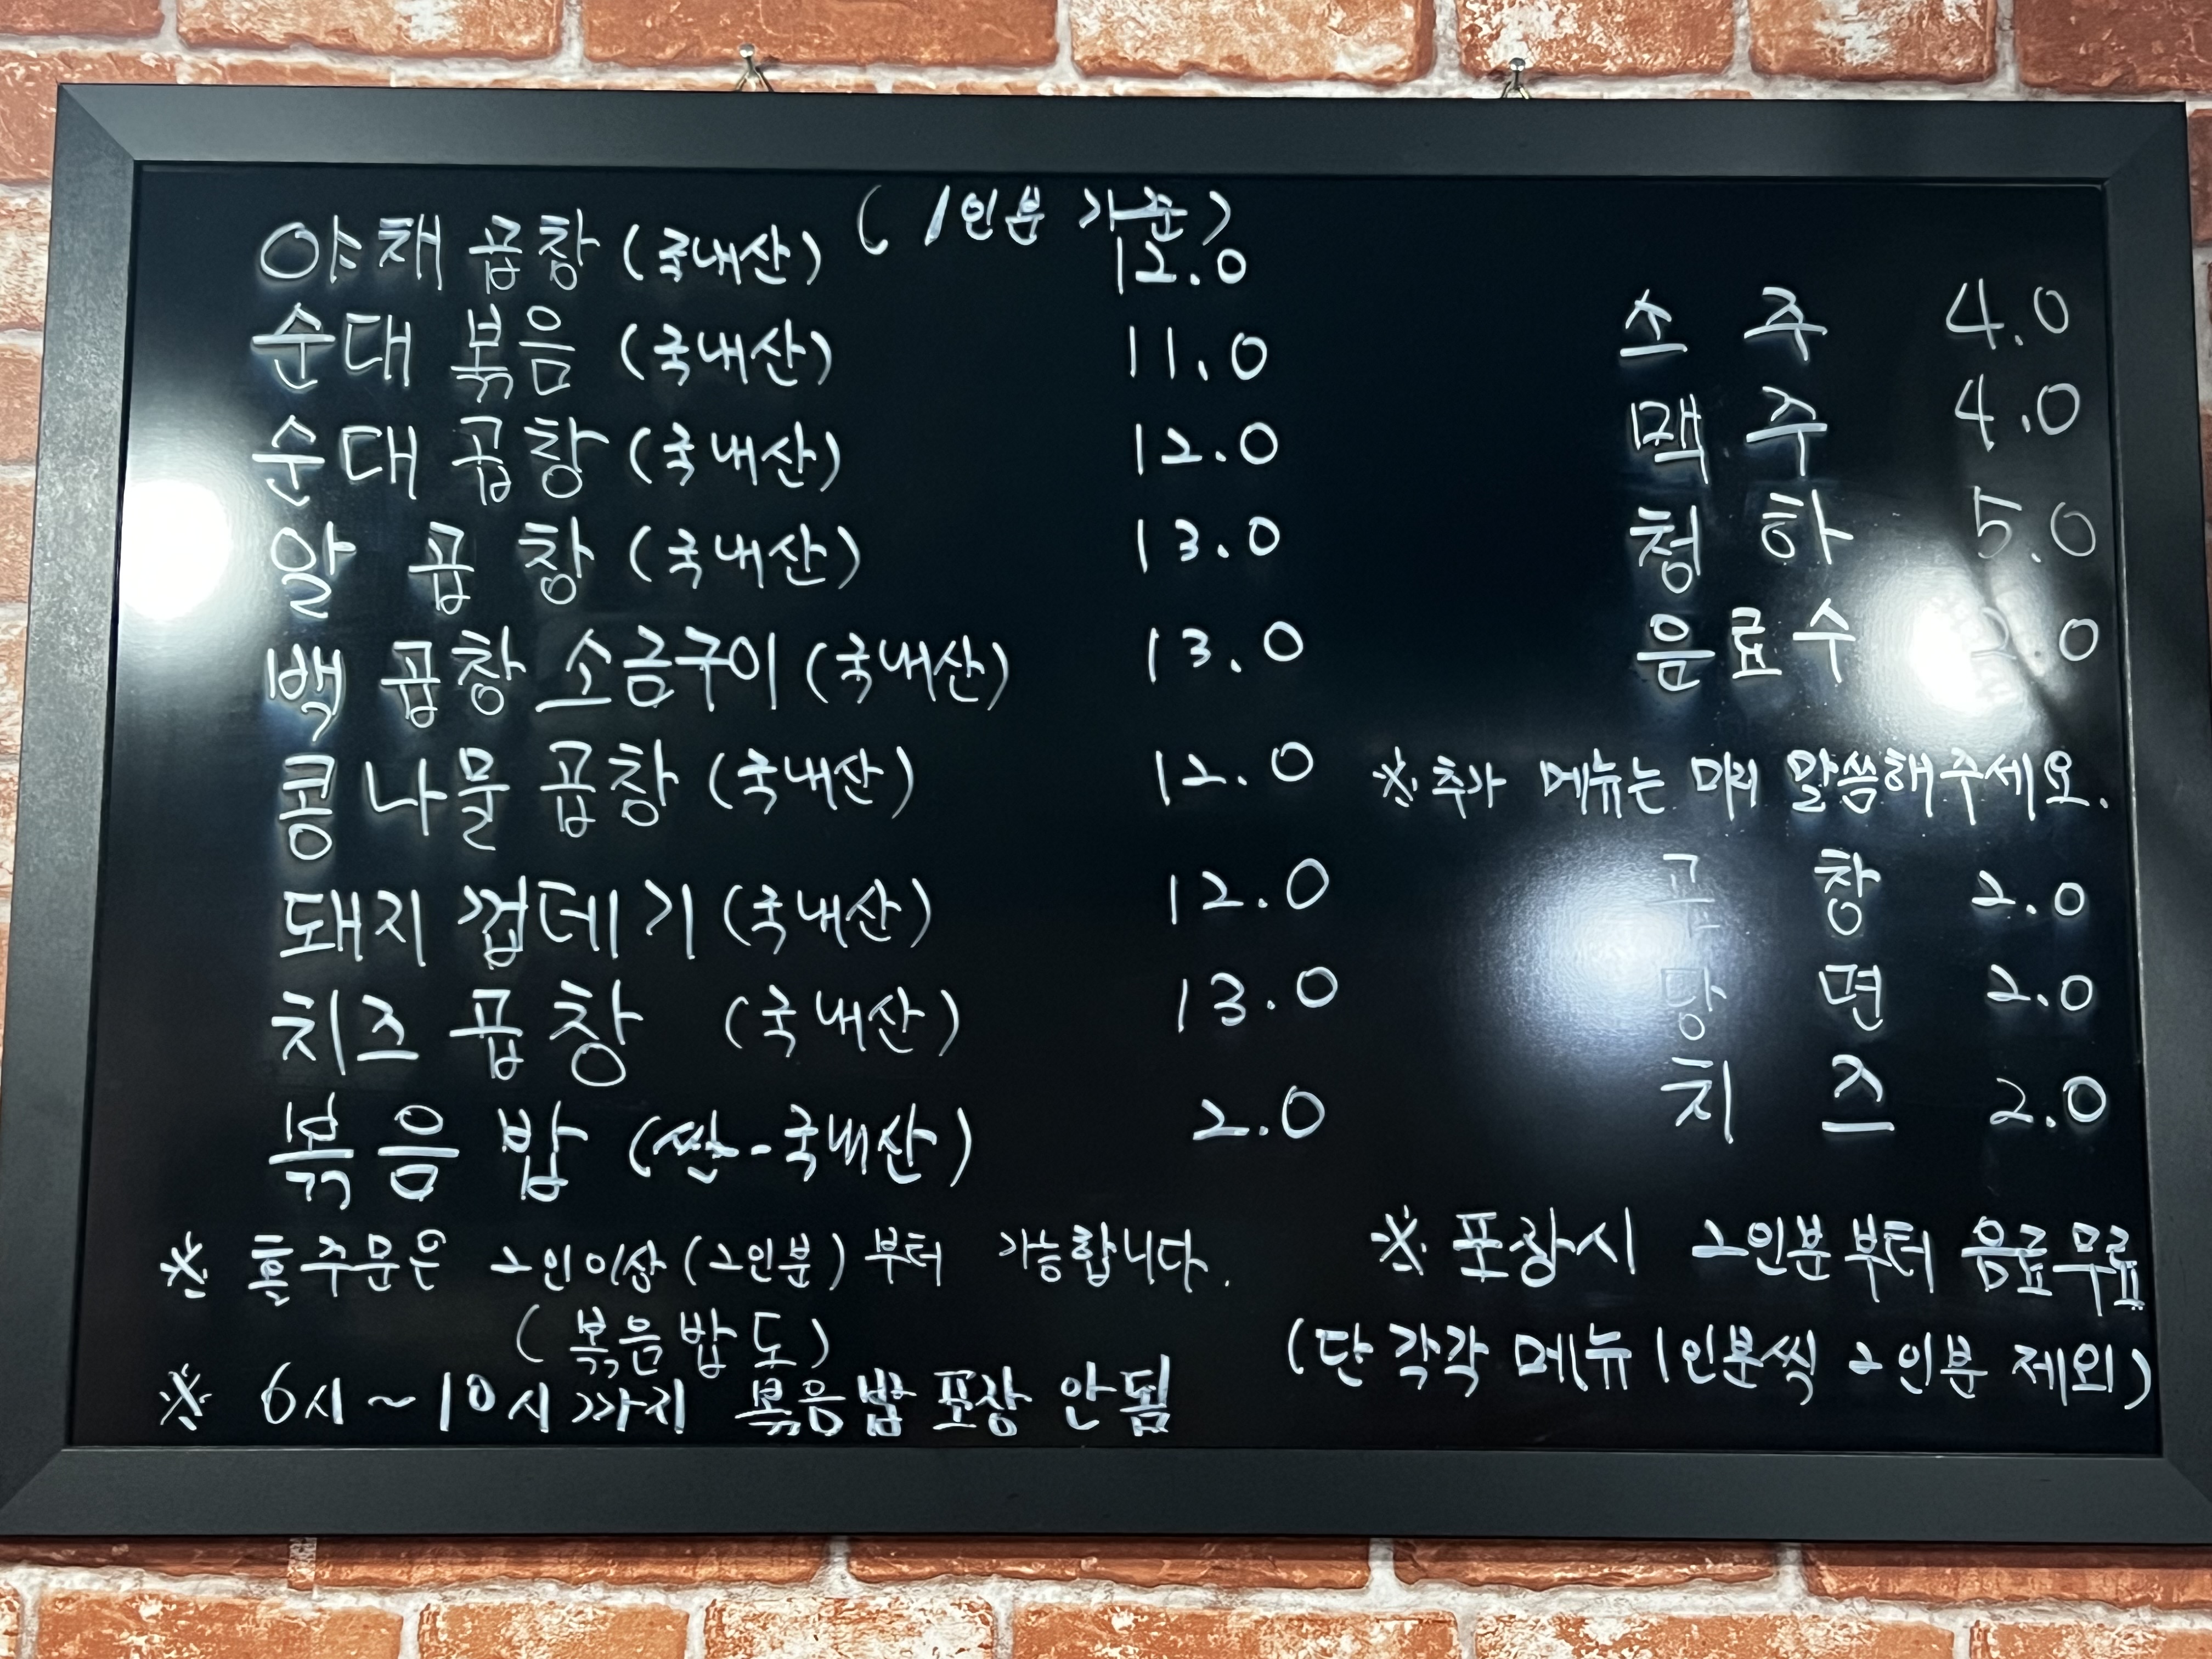 ( 1인분 가준)
야채 곱창 (국내산) 12.0
순대 볶음 (국내산) 11.0
순대 곱창 (국내산) 12.0
알 곱창 (국내산) 13.0
백 곱창 소금구이 (국내산) 13.0
콩나물 곱창 (국내산) 12.0
돼지 껍데기 (국내산) 12.0
치즈 곱창 (국내산) 13.0
볶음 밥 (쌀-국내산) 2.0
※ 홀주문은 2인이상 (2인분) 부터 가능합니다.
( 볶음밥도)
※ 6시~10시까지 볶음밥 포장 안됨
소 주 4.0
맥 주 4.0
청 하 5.0
음료수 2.0
※ 추가 메뉴는 미리 말씀해주세요.
곱 창 2.0
당 면 2.0
치 즈 2.0
※ 포장시 2인분부터 음료무료
(단 각각 메뉴 1인분씩 2인분 제외)